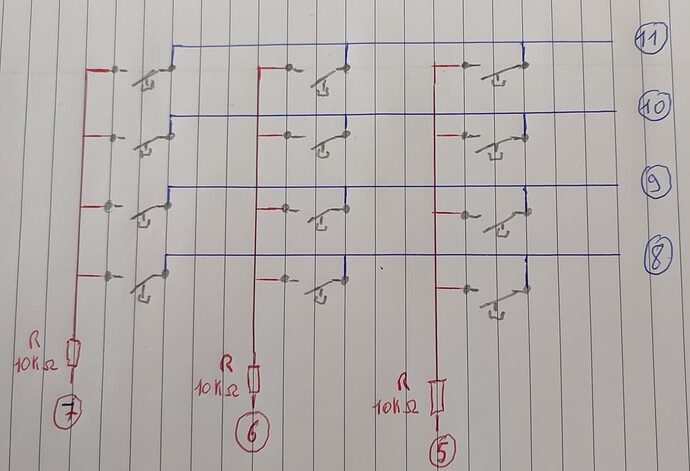 11
10
9
8
R
10KΩ
7
R
10KΩ
6
R
10KΩ
5